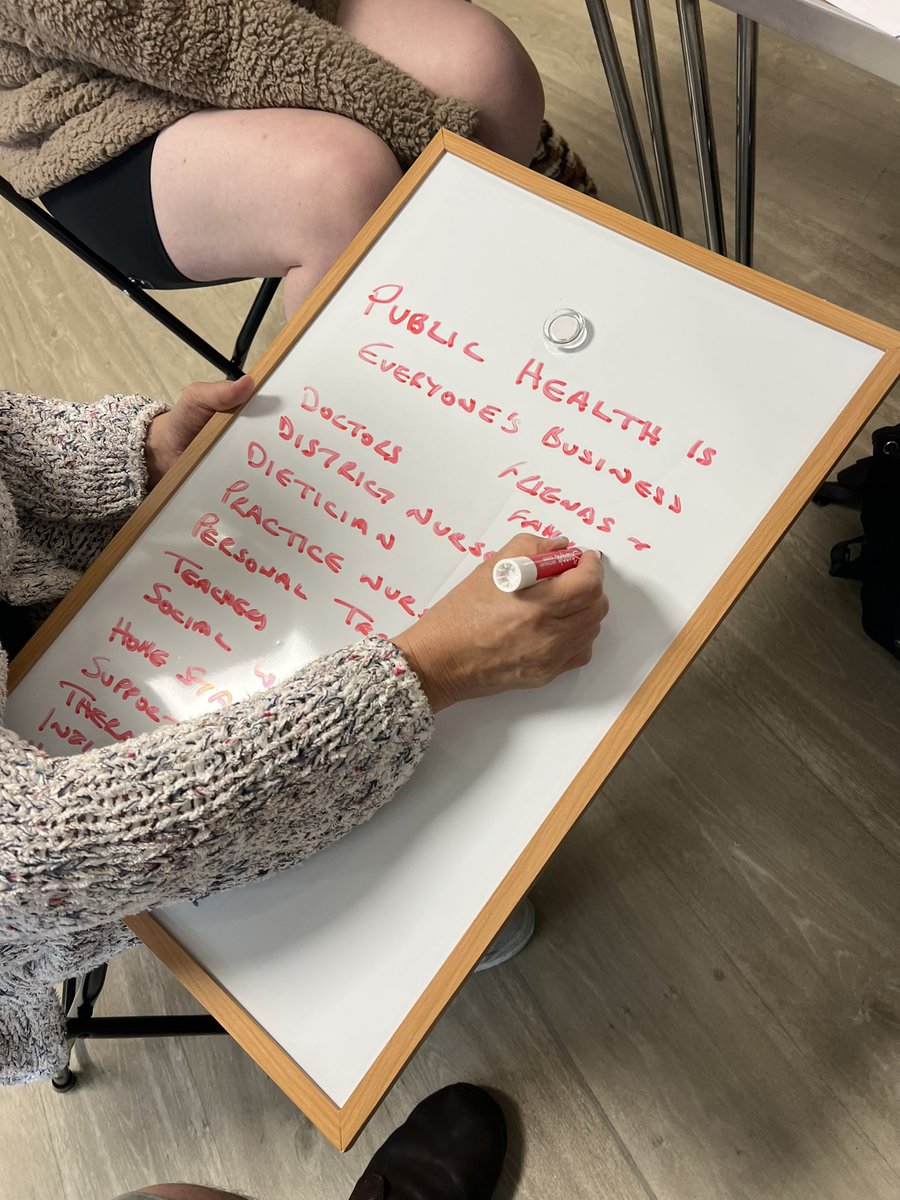 PUBLIC HEALTH IS
EVERYONE'S BUSINESS
DOCTORS
DISTRICT NURSE
DIETICIAN
PRACTICE NURSE
PERSONAL
TEACHERS
SOCIAL
HOME
SUPPORT
FRIENDS +